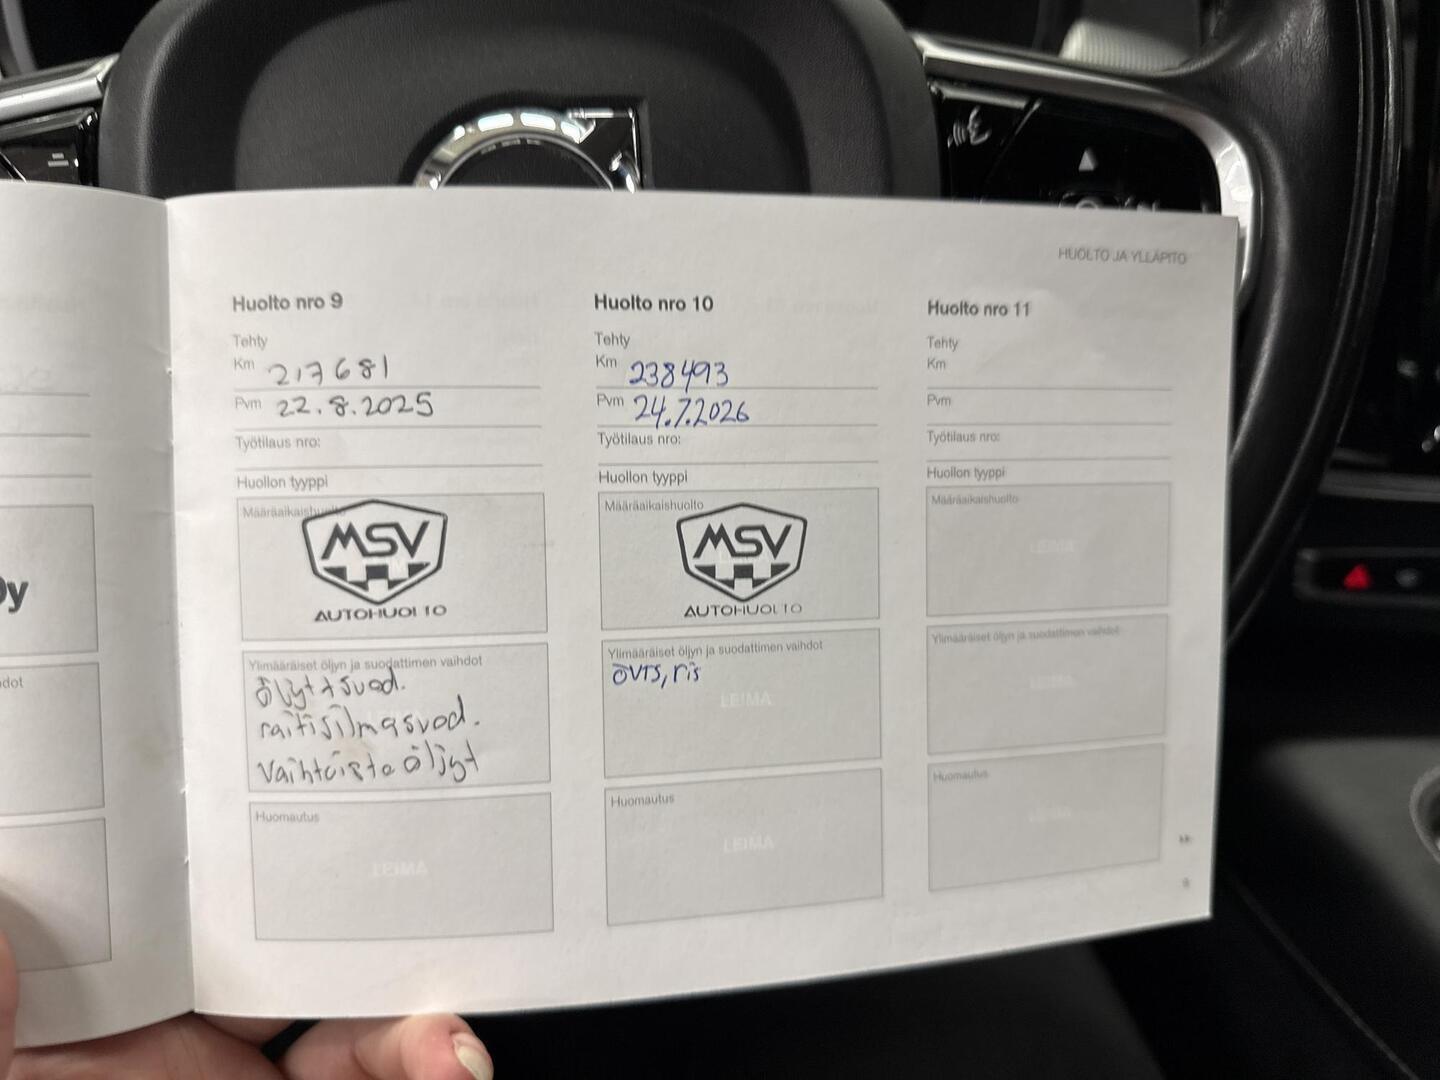 HUOLTO JA YLLÄPITO
Huolto nro 9
Tehty
Km 217681
Pvm 22.8.2025
Työtilaus nro:
Huollon tyyppi
Määräaikaishuolto
MSV
AUTOHUOLTO
Ylimääräiset öljyn ja suodattimen vaihdot
öljyt + suod.
raitisilmasuod.
Vaihteisto öljyt
Huomautus
LEIMA
Huolto nro 10
Tehty
Km 238493
Pvm 24.7.2026
Työtilaus nro:
Huollon tyyppi
Määräaikaishuolto
MSV
AUTOHUOLTO
Ylimääräiset öljyn ja suodattimen vaihdot
öVTS, ris
LEIMA
Huomautus
LEIMA
Huolto nro 11
Tehty
Km
Pvm
Työtilaus nro:
Huollon tyyppi
Määräaikaishuolto
LEIMA
Ylimääräiset öljyn ja suodattimen vaihdot
LEIMA
Huomautus
LEIMA
9
Oy
dot